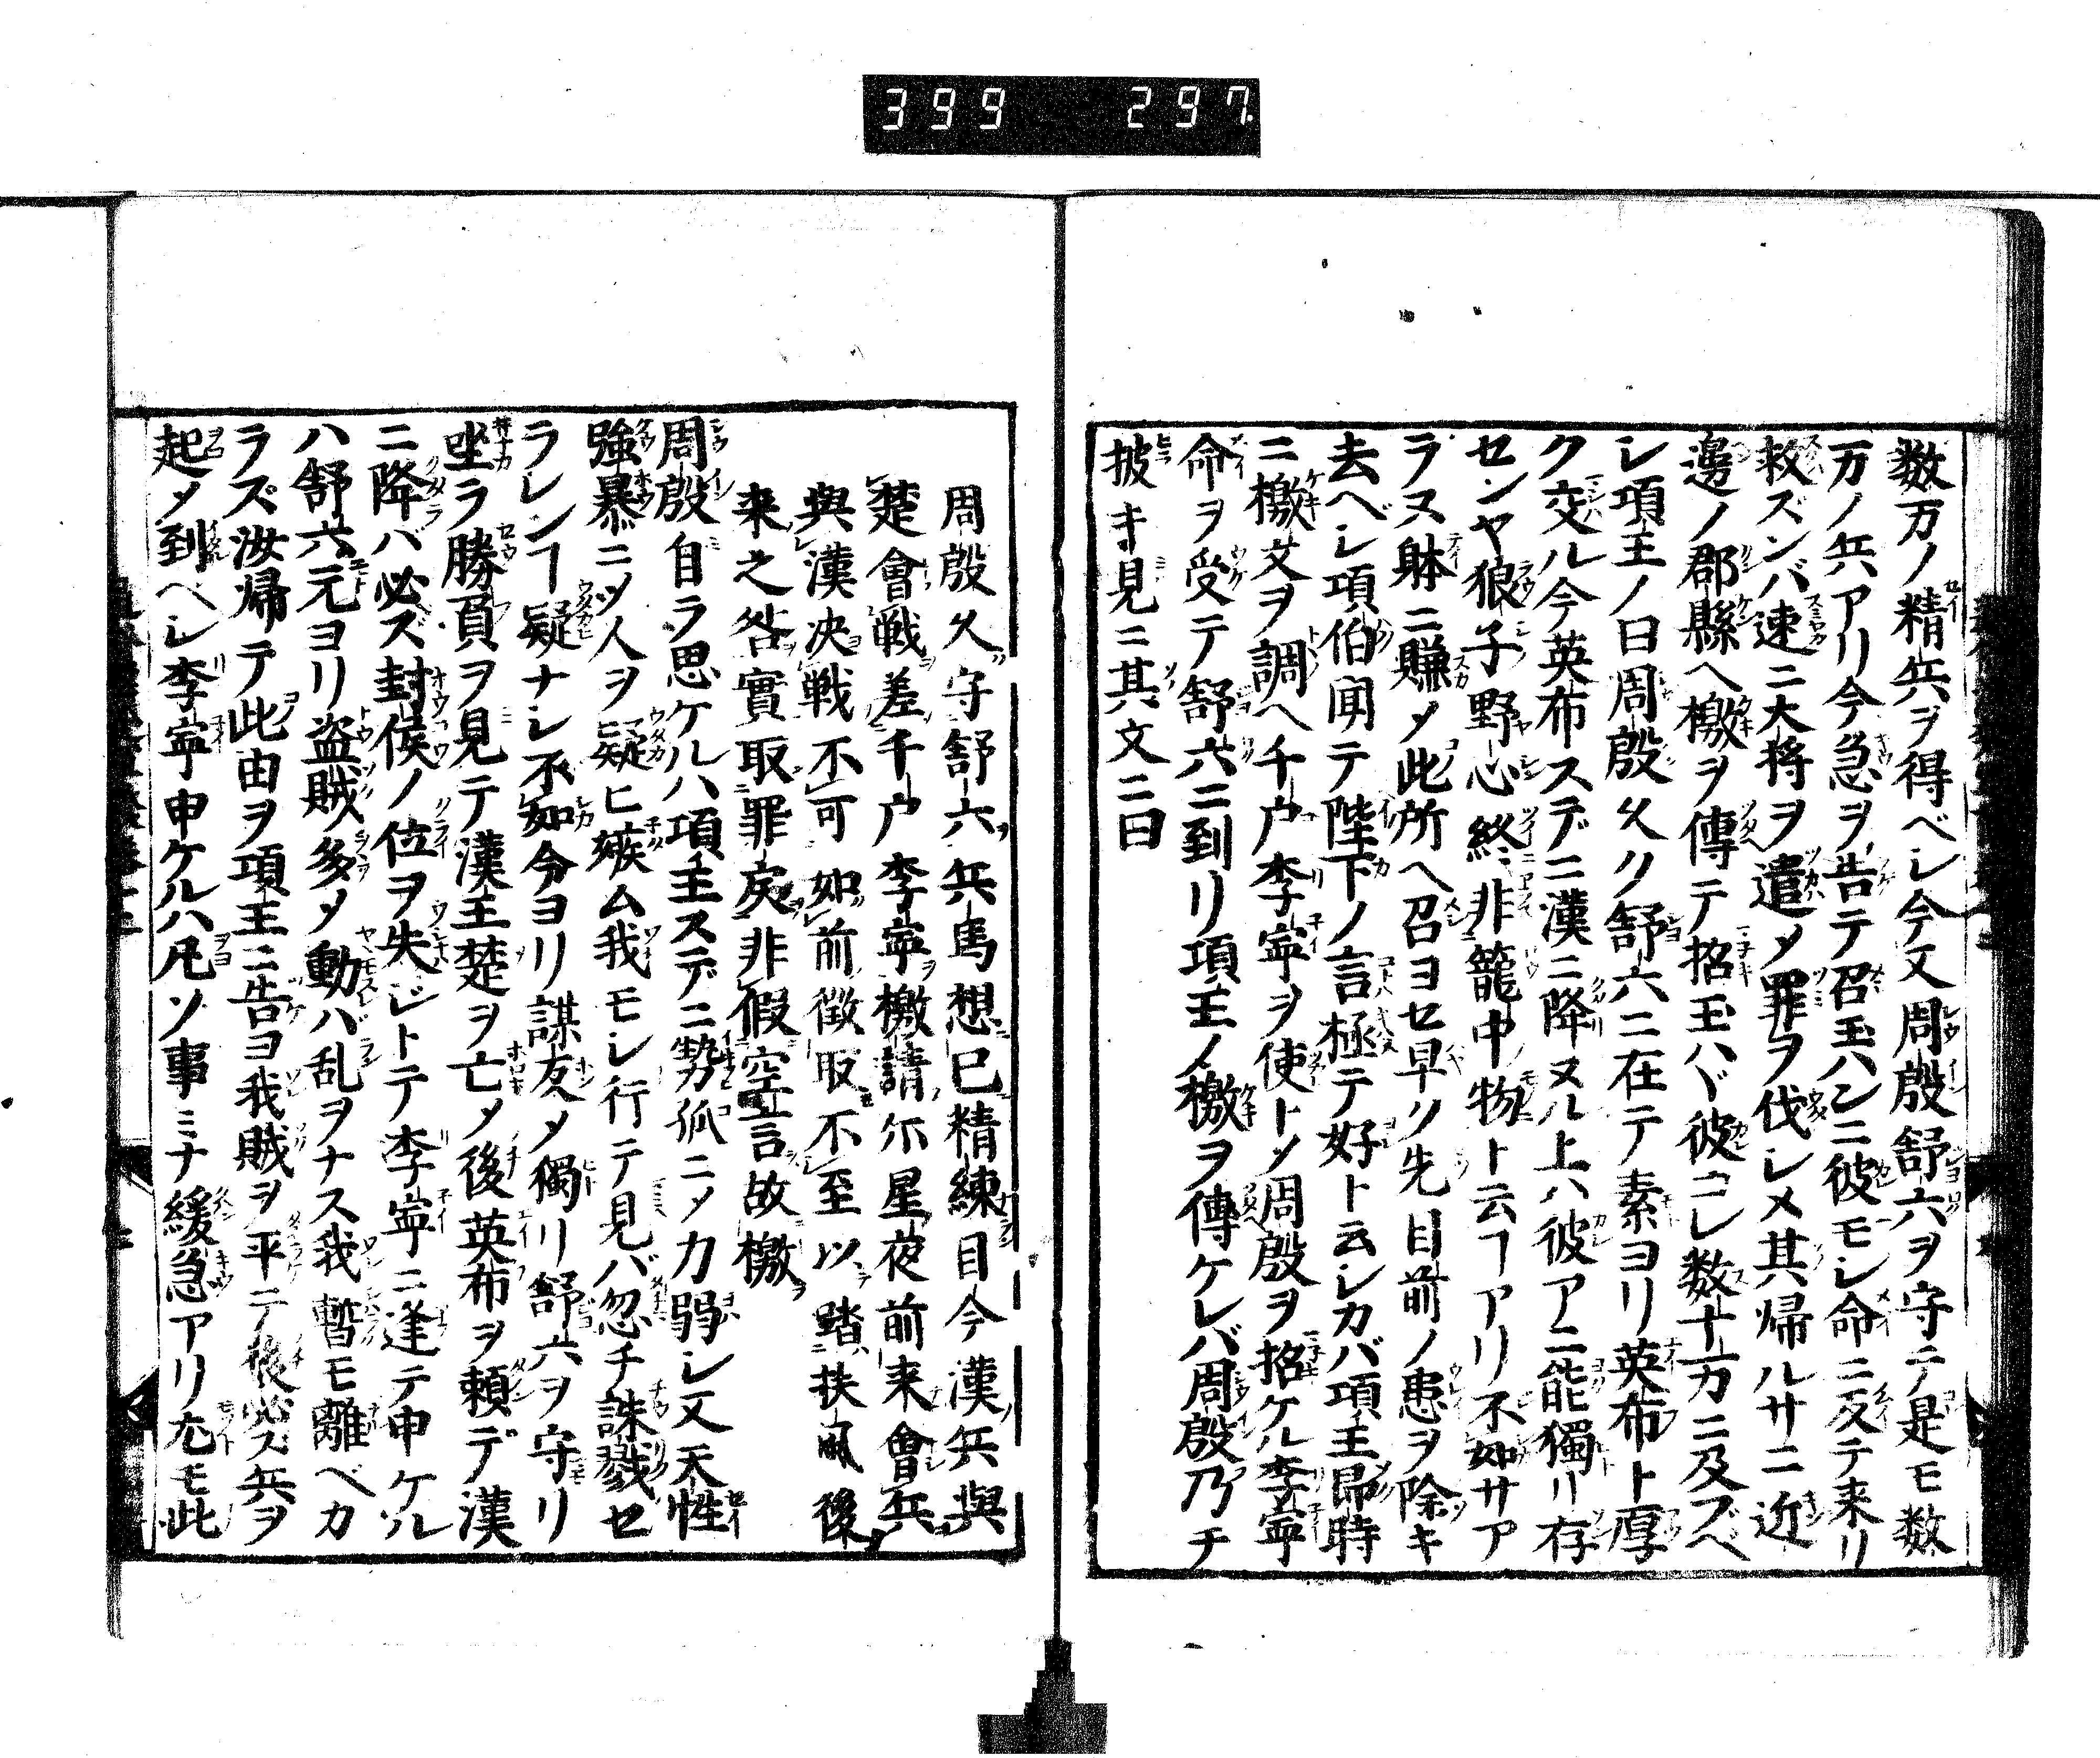 399 297
数万ノ精兵ヲ得ベレ今又周殷舒六ヲ守テ是モ数
万ノ兵アリ今急ヲ告テ召玉ハンニ彼モレ命ニ反テ来リ
救ズンバ速ニ大将ヲ遣メ罪ヲ伐レメ其帰ルサニ近
邊ノ郡縣ヘ檄ヲ傳テ招玉ハヾ彼コレ数十万ニ及ブベ
レ項王ノ曰周殷久ク舒六ニ在テ素ヨリ英布ト厚
ク交ル今英布スデニ漢ニ降ヌル上ハ彼アニ能獨リ存
センヤ狼子野心終非籠中物ト云ヿアリ不如サア
ラヌ躰ニ賺メ此所ヘ召ヨセ早ク先目前ノ患ヲ除キ
去ベレ項伯聞テ陛下ノ言極テ好ト云レカバ項王即時
ニ檄文ヲ調ヘ千户李寧ヲ使トメ周殷ヲ招ケル李寧
命ヲ受テ舒六ニ到リ項王ノ檄ヲ傳ケレバ周殷乃チ
披キ見ニ其文ニ曰
周殷久守舒六兵馬想已精練目今漢兵與
楚會戦差千户李寧檄請尓星夜前来會兵
與漢决戦不可如前徴取不至以踏扶同後
来之咎實取罪戻非假空言故檄
周殷自ラ思ケルハ項王スデニ勢孤ニメ力弱レ又天性
強暴ニメ人ヲ疑ヒ嫉ム我モレ行テ見バ忽チ誅戮セ
ラレンヿ疑ナレ不如今ヨリ謀反メ獨リ舒六ヲ守リ
坐ラ勝負ヲ見テ漢王楚ヲ亡メ後英布ヲ頼デ漢
ニ降バ必ズ封侯ノ位ヲ失ジトテ李寧ニ逢テ申ケル
ハ舒六元ヨリ盗賊多メ動バ乱ヲナス我暫モ離ベカ
ラズ汝帰テ此由ヲ項王ニ告ヨ我賊ヲ平テ後必ス兵ヲ
起メ到ベレ李寧申ケルハ凡ソ事ミナ緩急アリ尤モ此